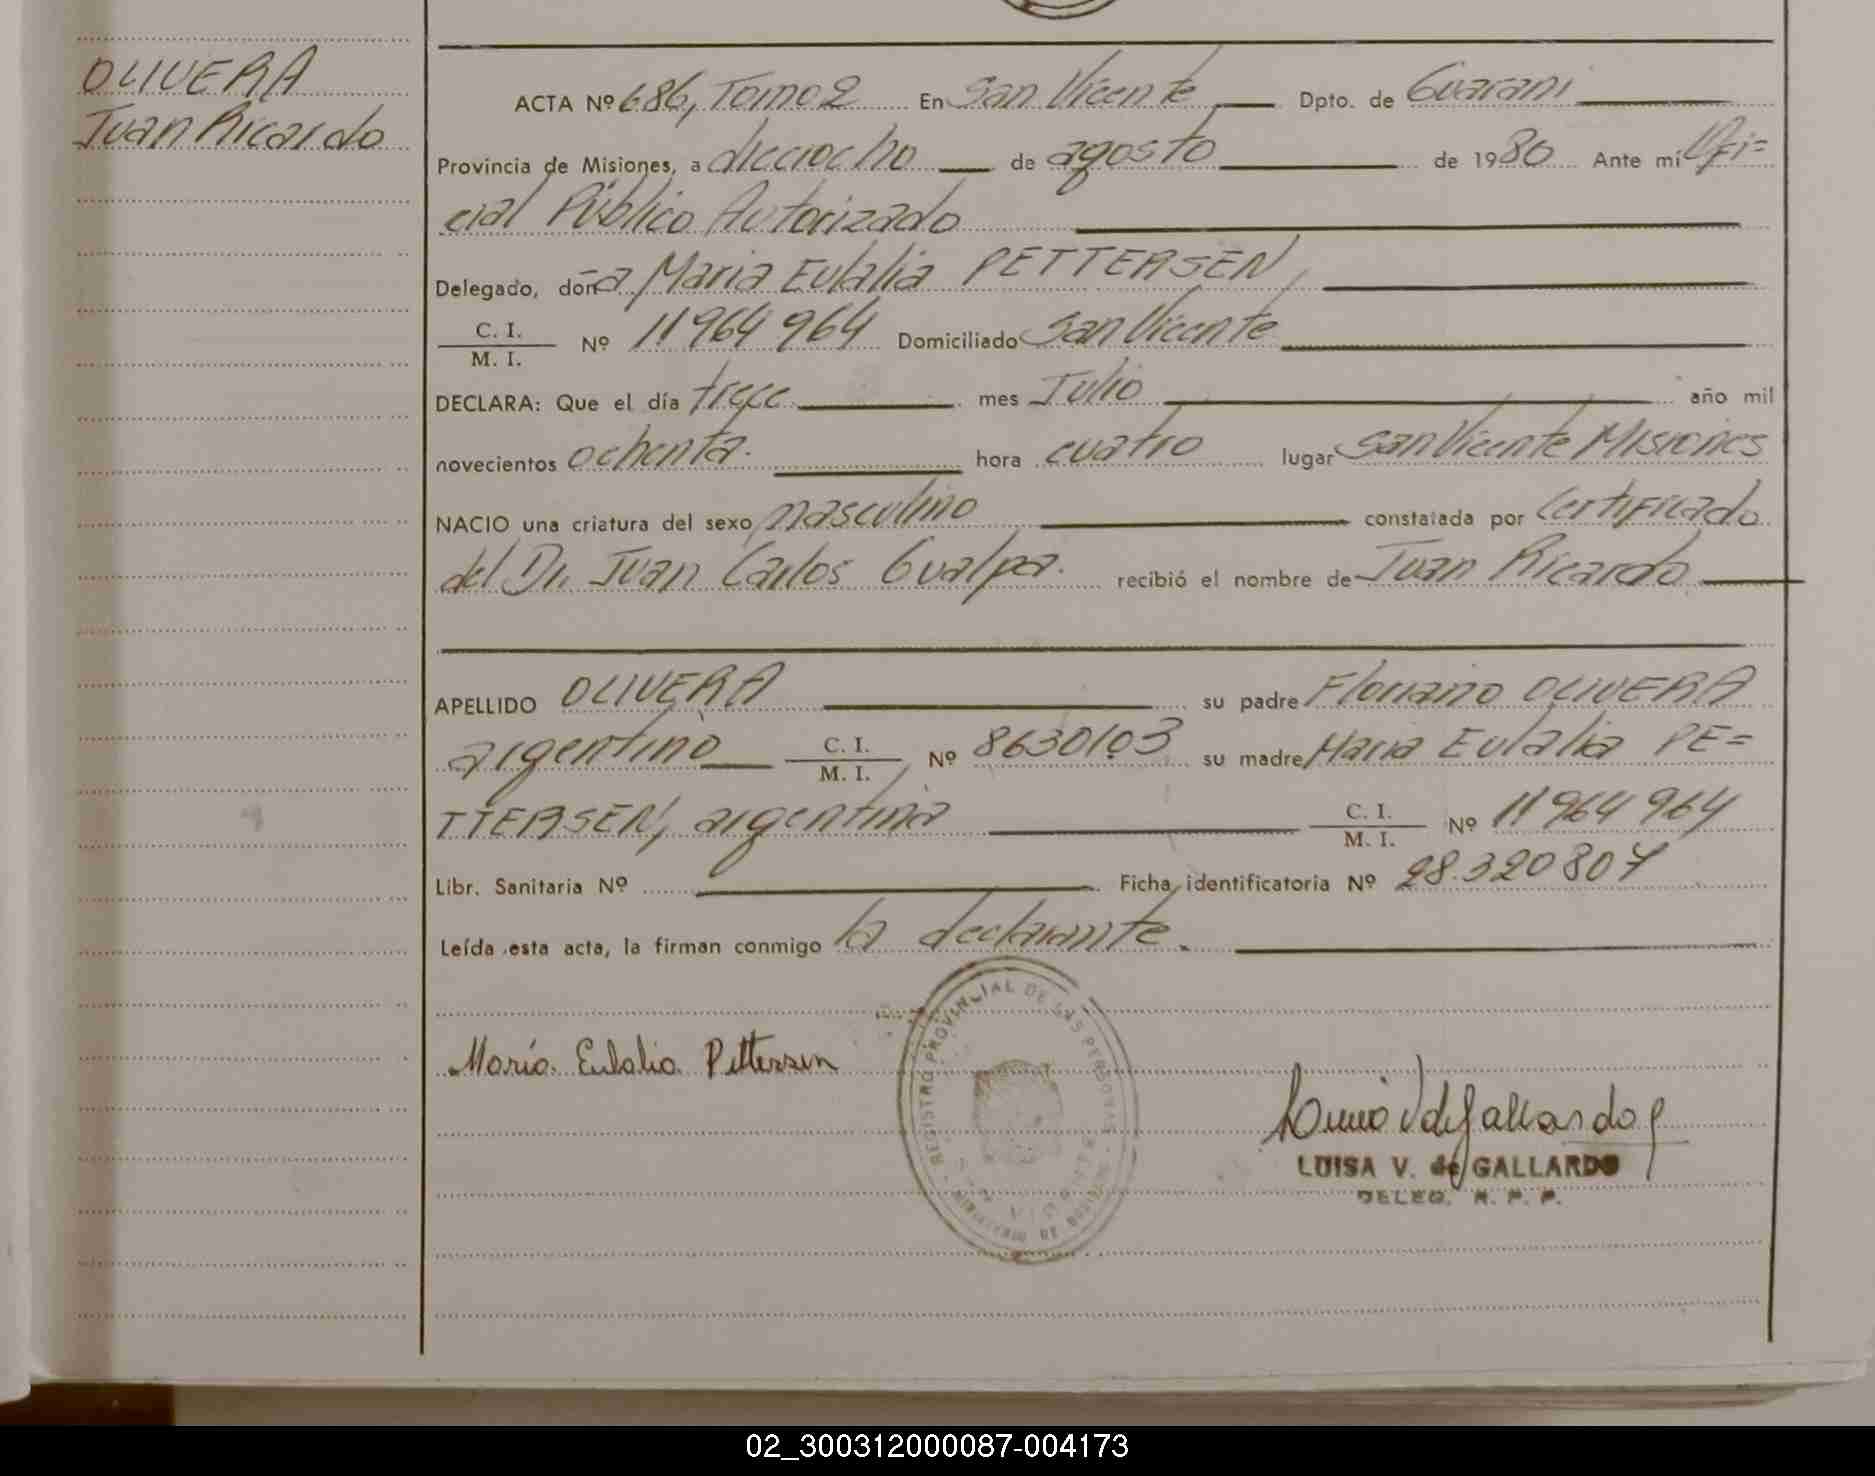 OLIVERA
Juan Ricardo
ACTA Nº 686, Tomo 2 En San Vicente Dpto. de Guarani
Provincia de Misiones, a dieciocho de agosto de 1980 Ante mí Ofi=
cial Público Autorizado
Delegado, doña Maria Eulalia PETTERSEN,
C. I.
M. I. Nº 11964964 Domiciliado San Vicente
DECLARA: Que el día trece mes Julio año mil
novecientos ochenta. hora cuatro lugar San Vicente Misiones
NACIO una criatura del sexo masculino constatada por Certificado
del Dr. Juan Carlos Gualpa. recibió el nombre de Juan Ricardo
APELLIDO OLIVERA su padre Floriano OLIVERA
argentino C. I. M. I. Nº 8630103 su madre Maria Eulalia PE=
TTERSEN, argentina C. I. M. I. Nº 11964964
Libr. Sanitaria Nº Ficha identificatoria Nº 28.320807
Leída esta acta, la firman conmigo la declarante.
REGISTRO PROVINCIAL DE LAS PERSONAS
María Eulalia Pettersen
LUISA V. de GALLARDO
DELEG. R. P. P.
02_300312000087-004173